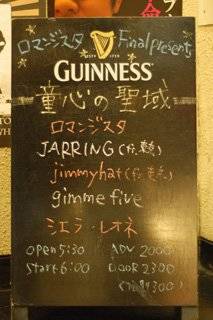 ロマンジスタ Final presents
GUINNESS
童心の聖域
ロマンジスタ
JARRING
jimmyhat
gimme five
シエラ・レオネ
open 5:30 ADV 2000
Start 6:00 DOOR 2300